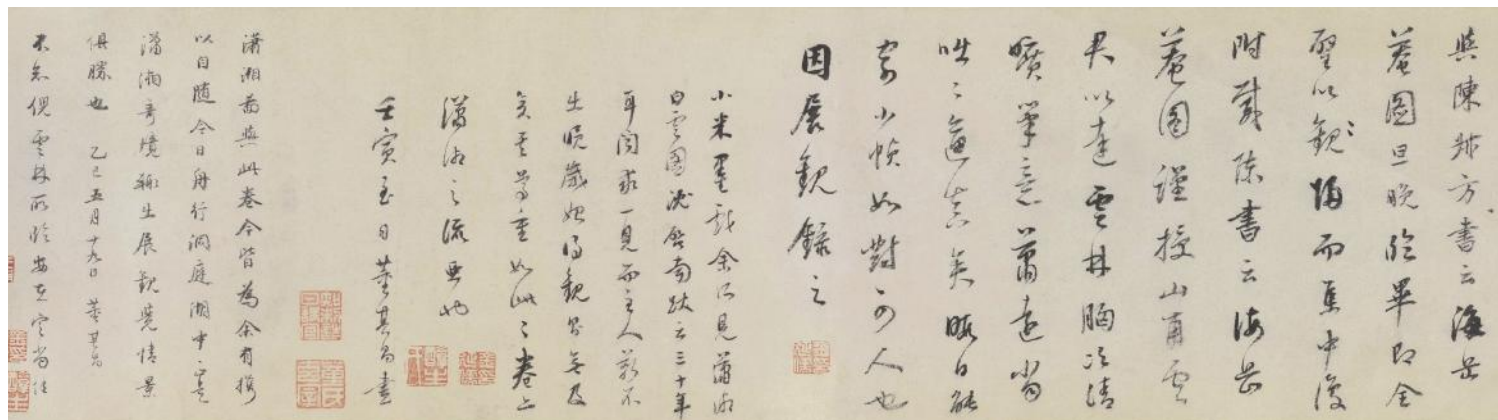 與陳叔方書云海岳
菴圖旦晚臨畢即全
璧以 而集中復
附載陳書云海岳
菴圖謹授山甫雲
君以達雲林胸次清
曠筆意蕭遠當
咄〻逼真矣暇日能
寄小幀如對可人也
因展觀錄之
小米墨戲余所見瀟湘
白雲圖沈啟南跋云三十年
耳聞求一見而主人靳不
出晚歲始得觀 及
矣其貴重如此〻卷亦
瀟湘之流亞也
壬寅至日董其昌書
瀟湘圖與此卷今皆為余有携
以自隨今日舟行洞庭湖中寔
瀟湘奇境輒出展觀覺情景
俱勝也 乙巳五月十九日 董其昌
不知倪雲林所臨安在它當